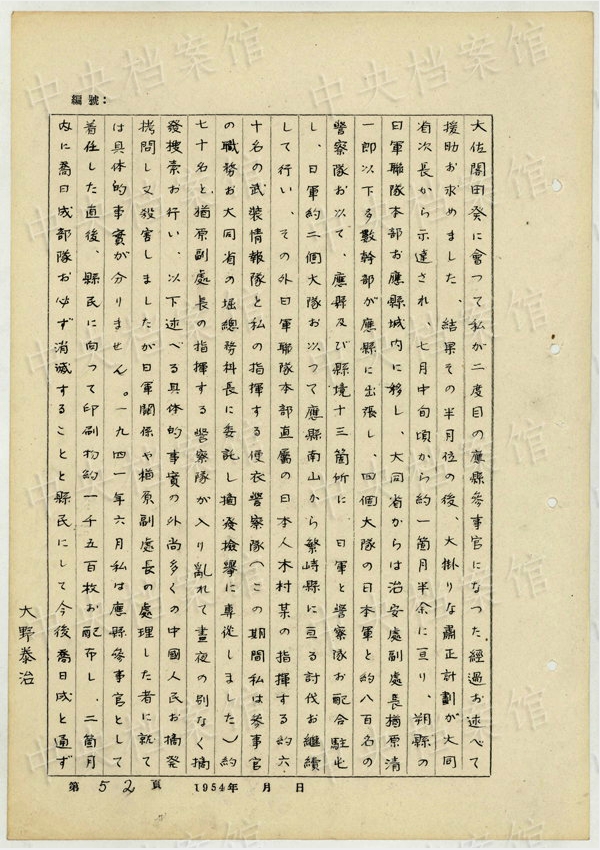 編號：
大佐閤田癸に會つて私が二度目の應縣參事官になつた経過お述べて
援助お求めました、結果その半月位の後、大掛りな肅正計劃が大同
省次長から示達され、七月中旬頃から約一箇月半余に亘り、朔縣の
日軍聯隊本部お應縣城内に移し、大同省からは治安處副處長楢原清
一郎以下多數幹部が應縣に出張し、四個大隊の日本軍と約八百名の
警察隊お以て、應縣及び縣境十三箇所に、日軍と警察隊お配合駐屯
し、日軍約二個大隊お以つて應縣南山から繁峙縣に亘る討伐お継續
して行い、その外日軍聯隊本部直屬の日本人木村某の指揮する約六
十名の武装情報隊と私の指揮する便衣警察隊（この期間私は參事官
の職務お大同省の堀總務科長に委託し摘発檢擧に専従しました）約
七十名と楢原副處長の指揮する警察隊が入り亂れて晝夜の別なく摘
發捜索お行い、以下述べる具体的事實の外尚多くの中國人民お摘発
拷問し又殺害しましたが日軍關係や楢原副處長の處理した者に就て
は具体的事實が分りません。一九四一年六月私は應縣參事官として
着任した直後、縣民に向つて印刷物約一千五百枚お配布し、二箇月
内に喬日成部隊お必ず消滅することと縣民にして今後喬日成と通ず
大野泰治
第 52 頁 1954年 月 日
中央档案馆